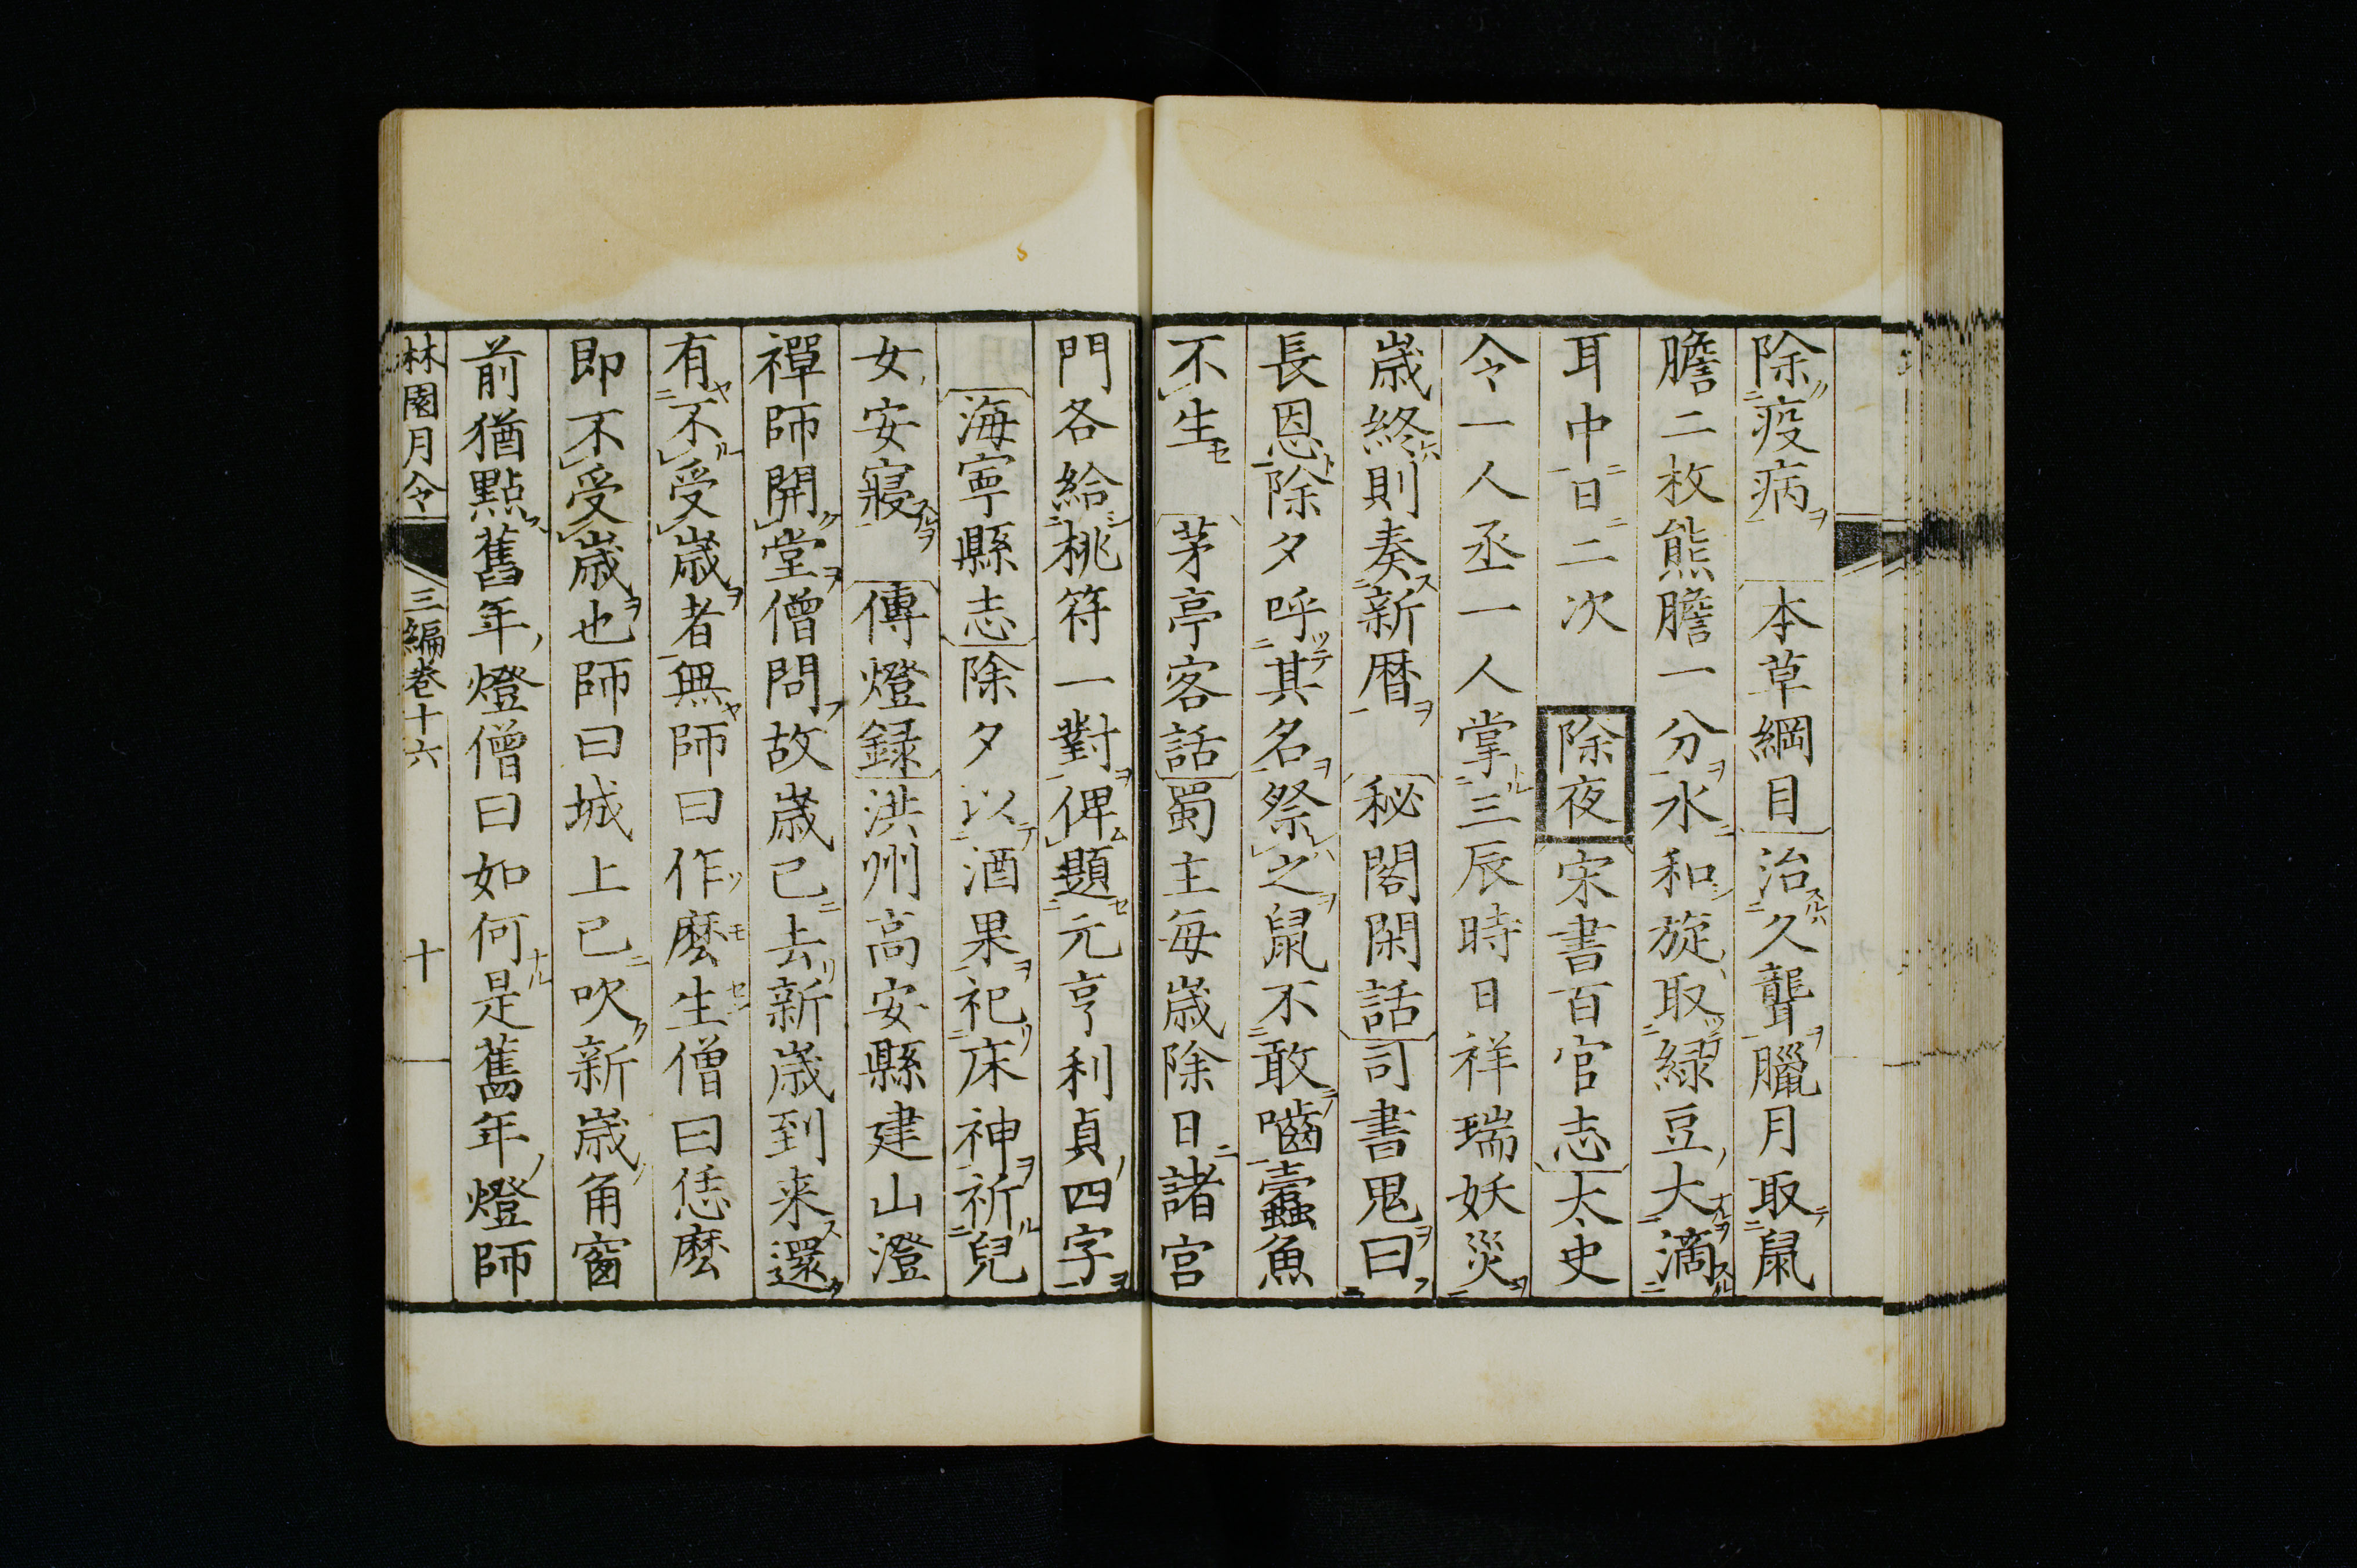 除疫病　本草綱目治久聾臘月取鼠
膽二枚熊膽一分水和旋取緑豆大滴
耳中日二次　除夜宋書百官志太史
令一人丞一人掌三辰時日祥瑞妖災
歳終則奏新暦　秘閣閑話司書鬼曰
長恩除夕呼其名祭之鼠不敢嚙蠹魚
不生　茅亭客話蜀主毎歳除日諸宮
門各給桃符一對俾題元亨利貞四字
海寧縣志除夕以酒果祀床神祈兒
女安寢　傳燈録洪州高安縣建山澄
禪師開堂僧問故歳已去新歳到来還
有不受歳者無師曰作麼生僧曰恁麼
即不受歳也師曰城上已吹新歳角窗
前猶點舊年燈僧曰如何是舊年燈師
林園月令　三編巻十六　十